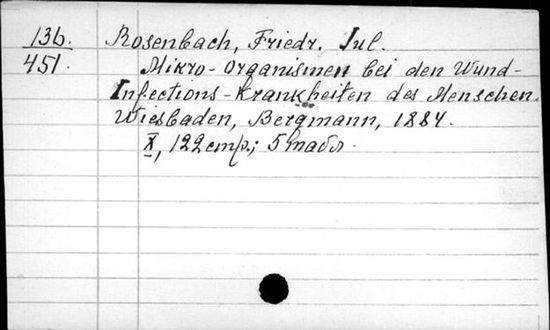 136. Rosenbach, Friedr. Jul.
451. Mikro-Organismen bei den Wund-
Infections-Krankheiten des Menschen.
Wiesbaden, Bergmann, 1884.
X, 122 стр.; 5 табл.